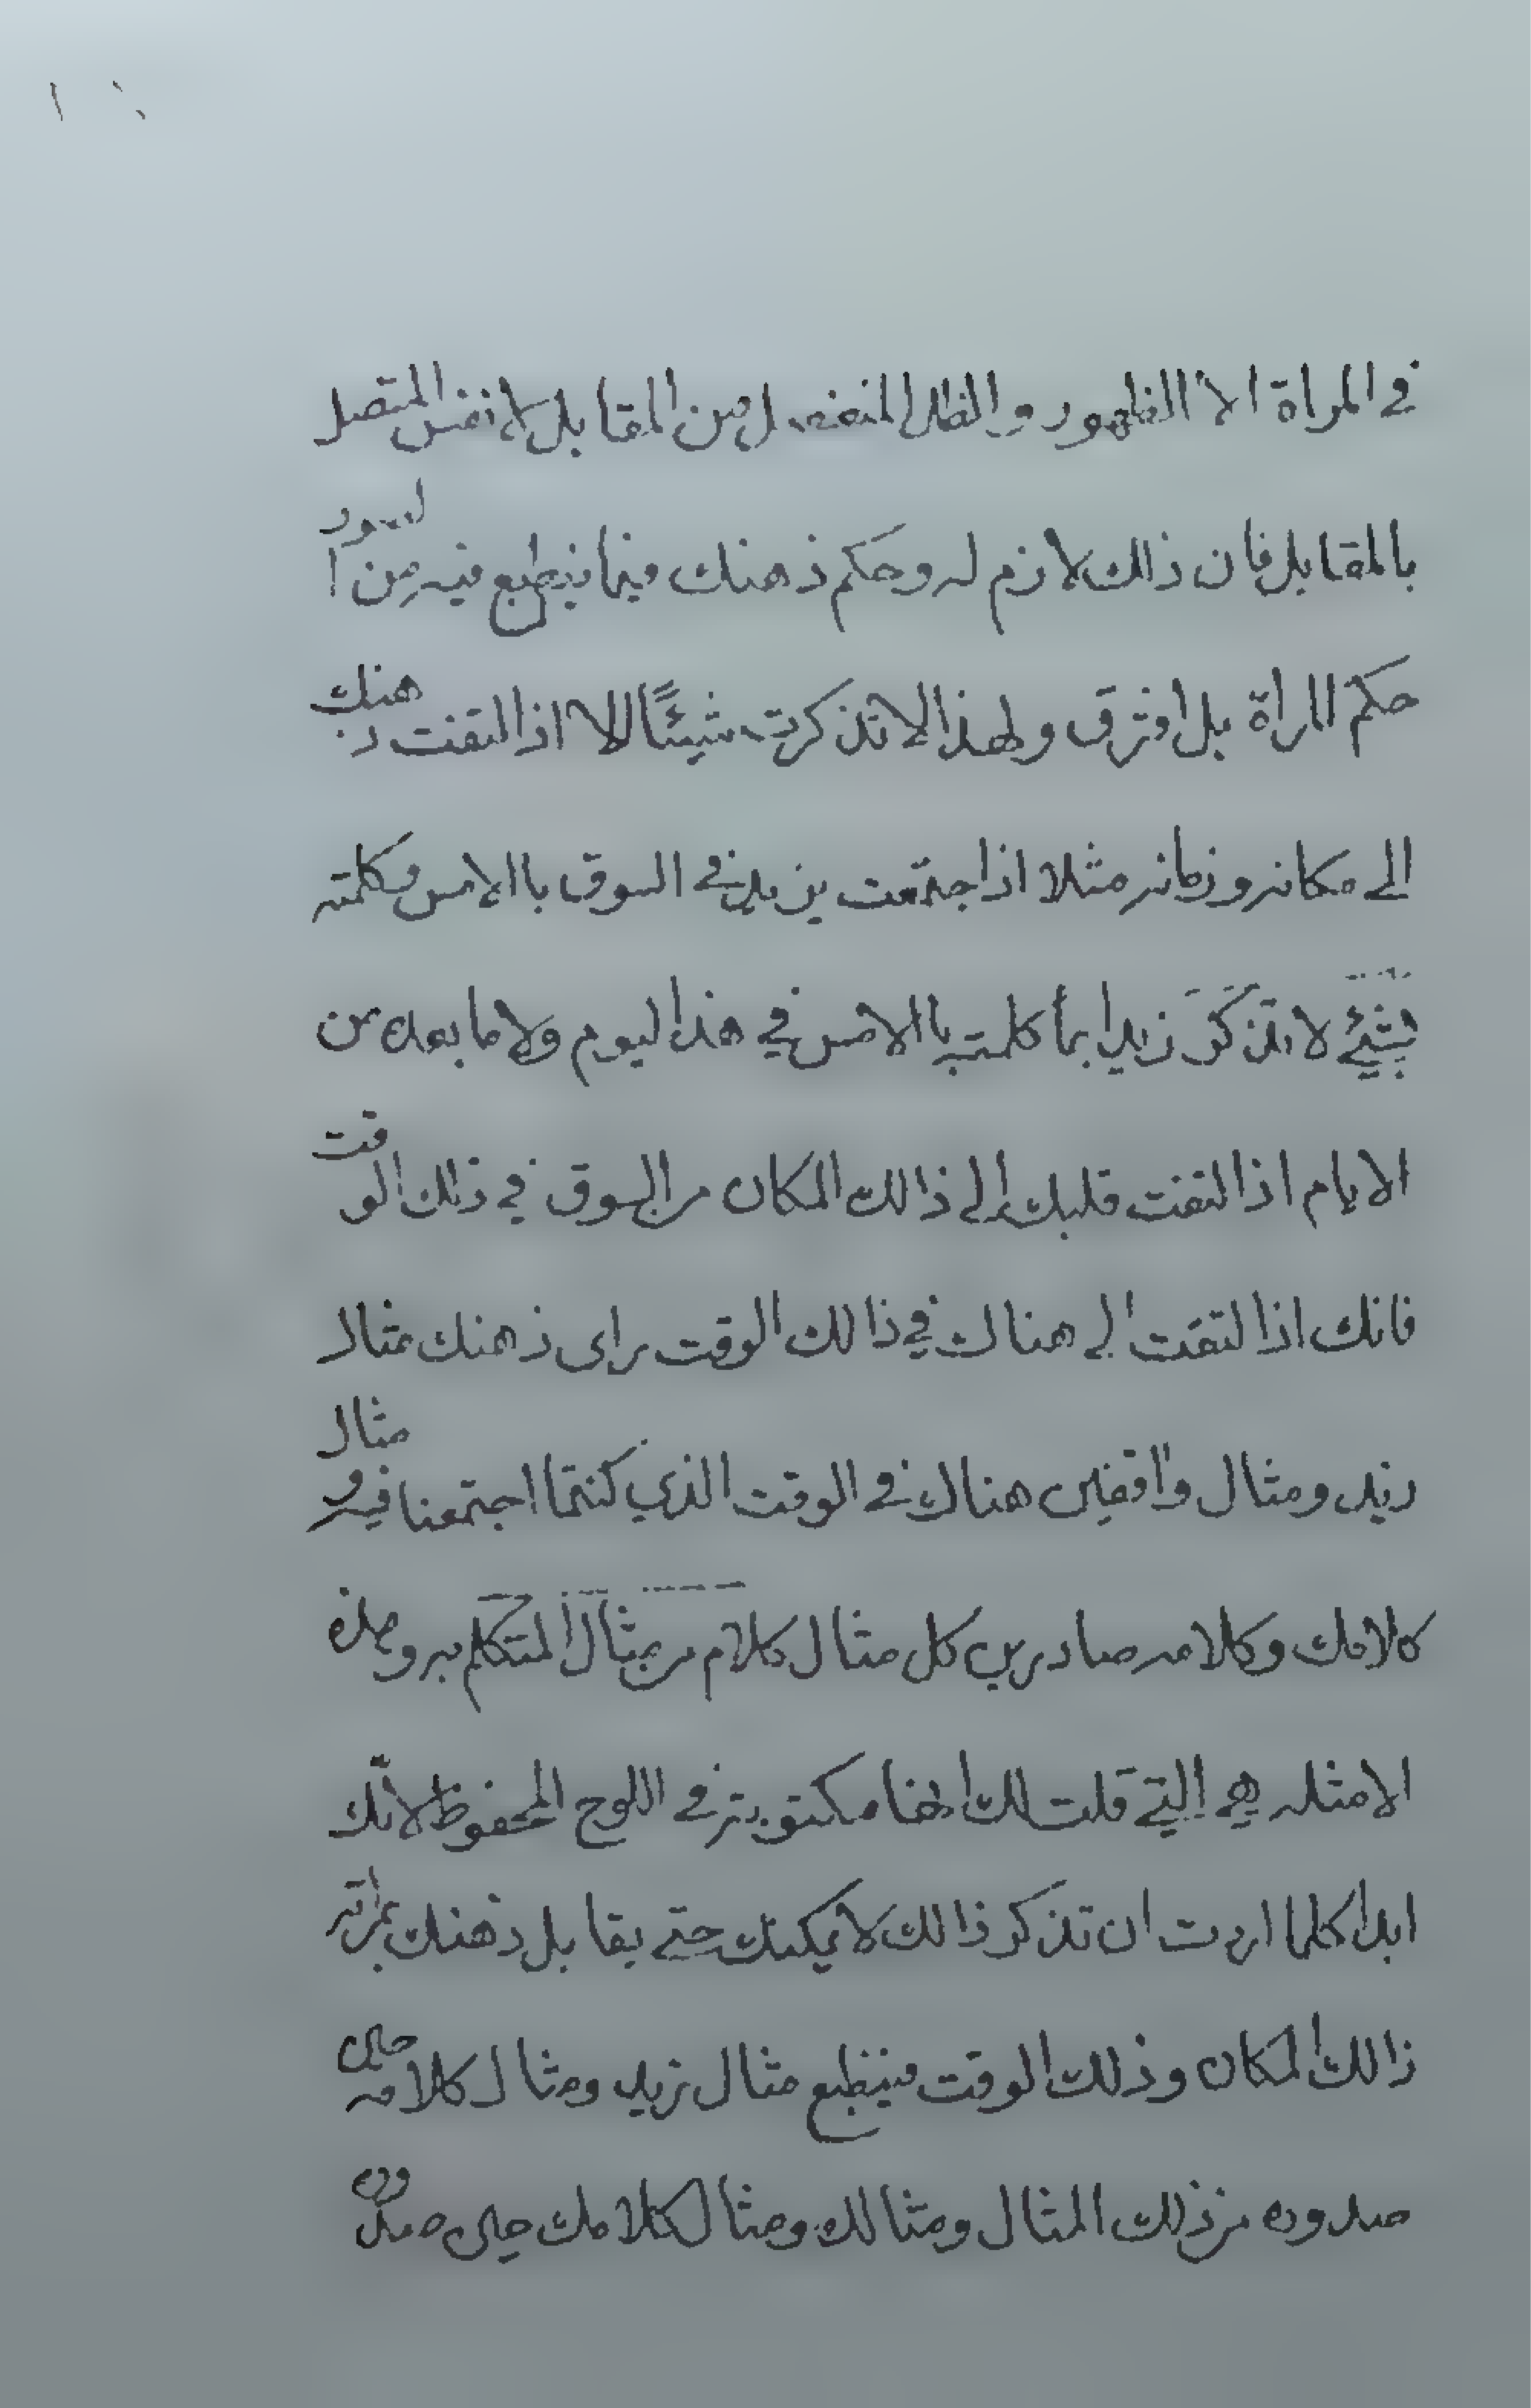 في المراة الا الظهور و الظل المنفصل من المقابل لا نفس المتصل
بالمقابل فان ذالك لازم له و حكم ذهنك فيما ينطبع فيه من الصور
حكم المراة بل افترق و لهذا لا تذكرت شيئًا الا اذا التفت ذهنك
الى مكانه و زمانه مثلا اذا اجتمعت بزيد في السوق باالامس و كلمته
بشيء لا تذكر زيدا بما كلمته باالامس في هذا ليوم ولا ما بعده من
الايام اذا التفت قلبك الى ذالك المكان من السوق في ذلك الوقت
فانك اذا لتفت الى هناك في ذالك الوقت راى ذهنك مثال
زيد و مثال واقفين هناك في الوقت الذي كنتما اجتمعنا فيه و مثال
كلامك و كلامه صادرين كل مثال كلام من مثال المتكلم به و هذه
الامثله هي التي قلت لك انها مكتوبة في اللوح المحفوظ لانك
ابدا كلما اردت ان تذكر ذالك لا يمكنك حتى يقابل ذهنك بمراته
ذالك المكان و ذلك الوقت فينطبع مثال زيد و مثال كلامه حين
صدوره من ذلك المثال و مثالك و مثال كلامك حين صدوره